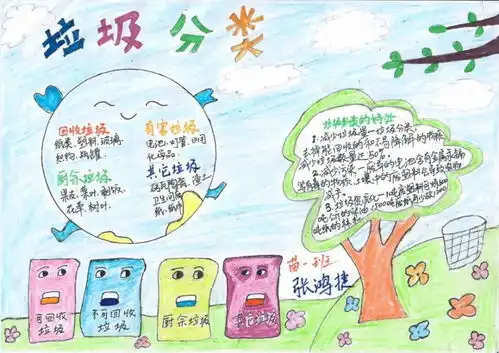 垃圾分类
回收垃圾
纸类、塑料、玻璃、
织物、瓶罐
有害垃圾
电池、灯管、日用
化妆品。
厨余垃圾
果皮、菜叶、剩饭、
花草、树叶。
其它垃圾
砖瓦陶瓷、渣土、
卫生间废
纸、纸巾
垃圾分类的好处
1.减少垃圾量—垃圾分类,
去掉能回收的和不易降解的物质,
减少垃圾数量达50%。
2.减少污染—废弃的电池含有金属汞等
有毒的物质,土壤中的废塑料会导致农物
减产。
苗一班
张鸿捷
可回收
垃圾
不可回收
垃圾
厨余垃圾
其它垃圾